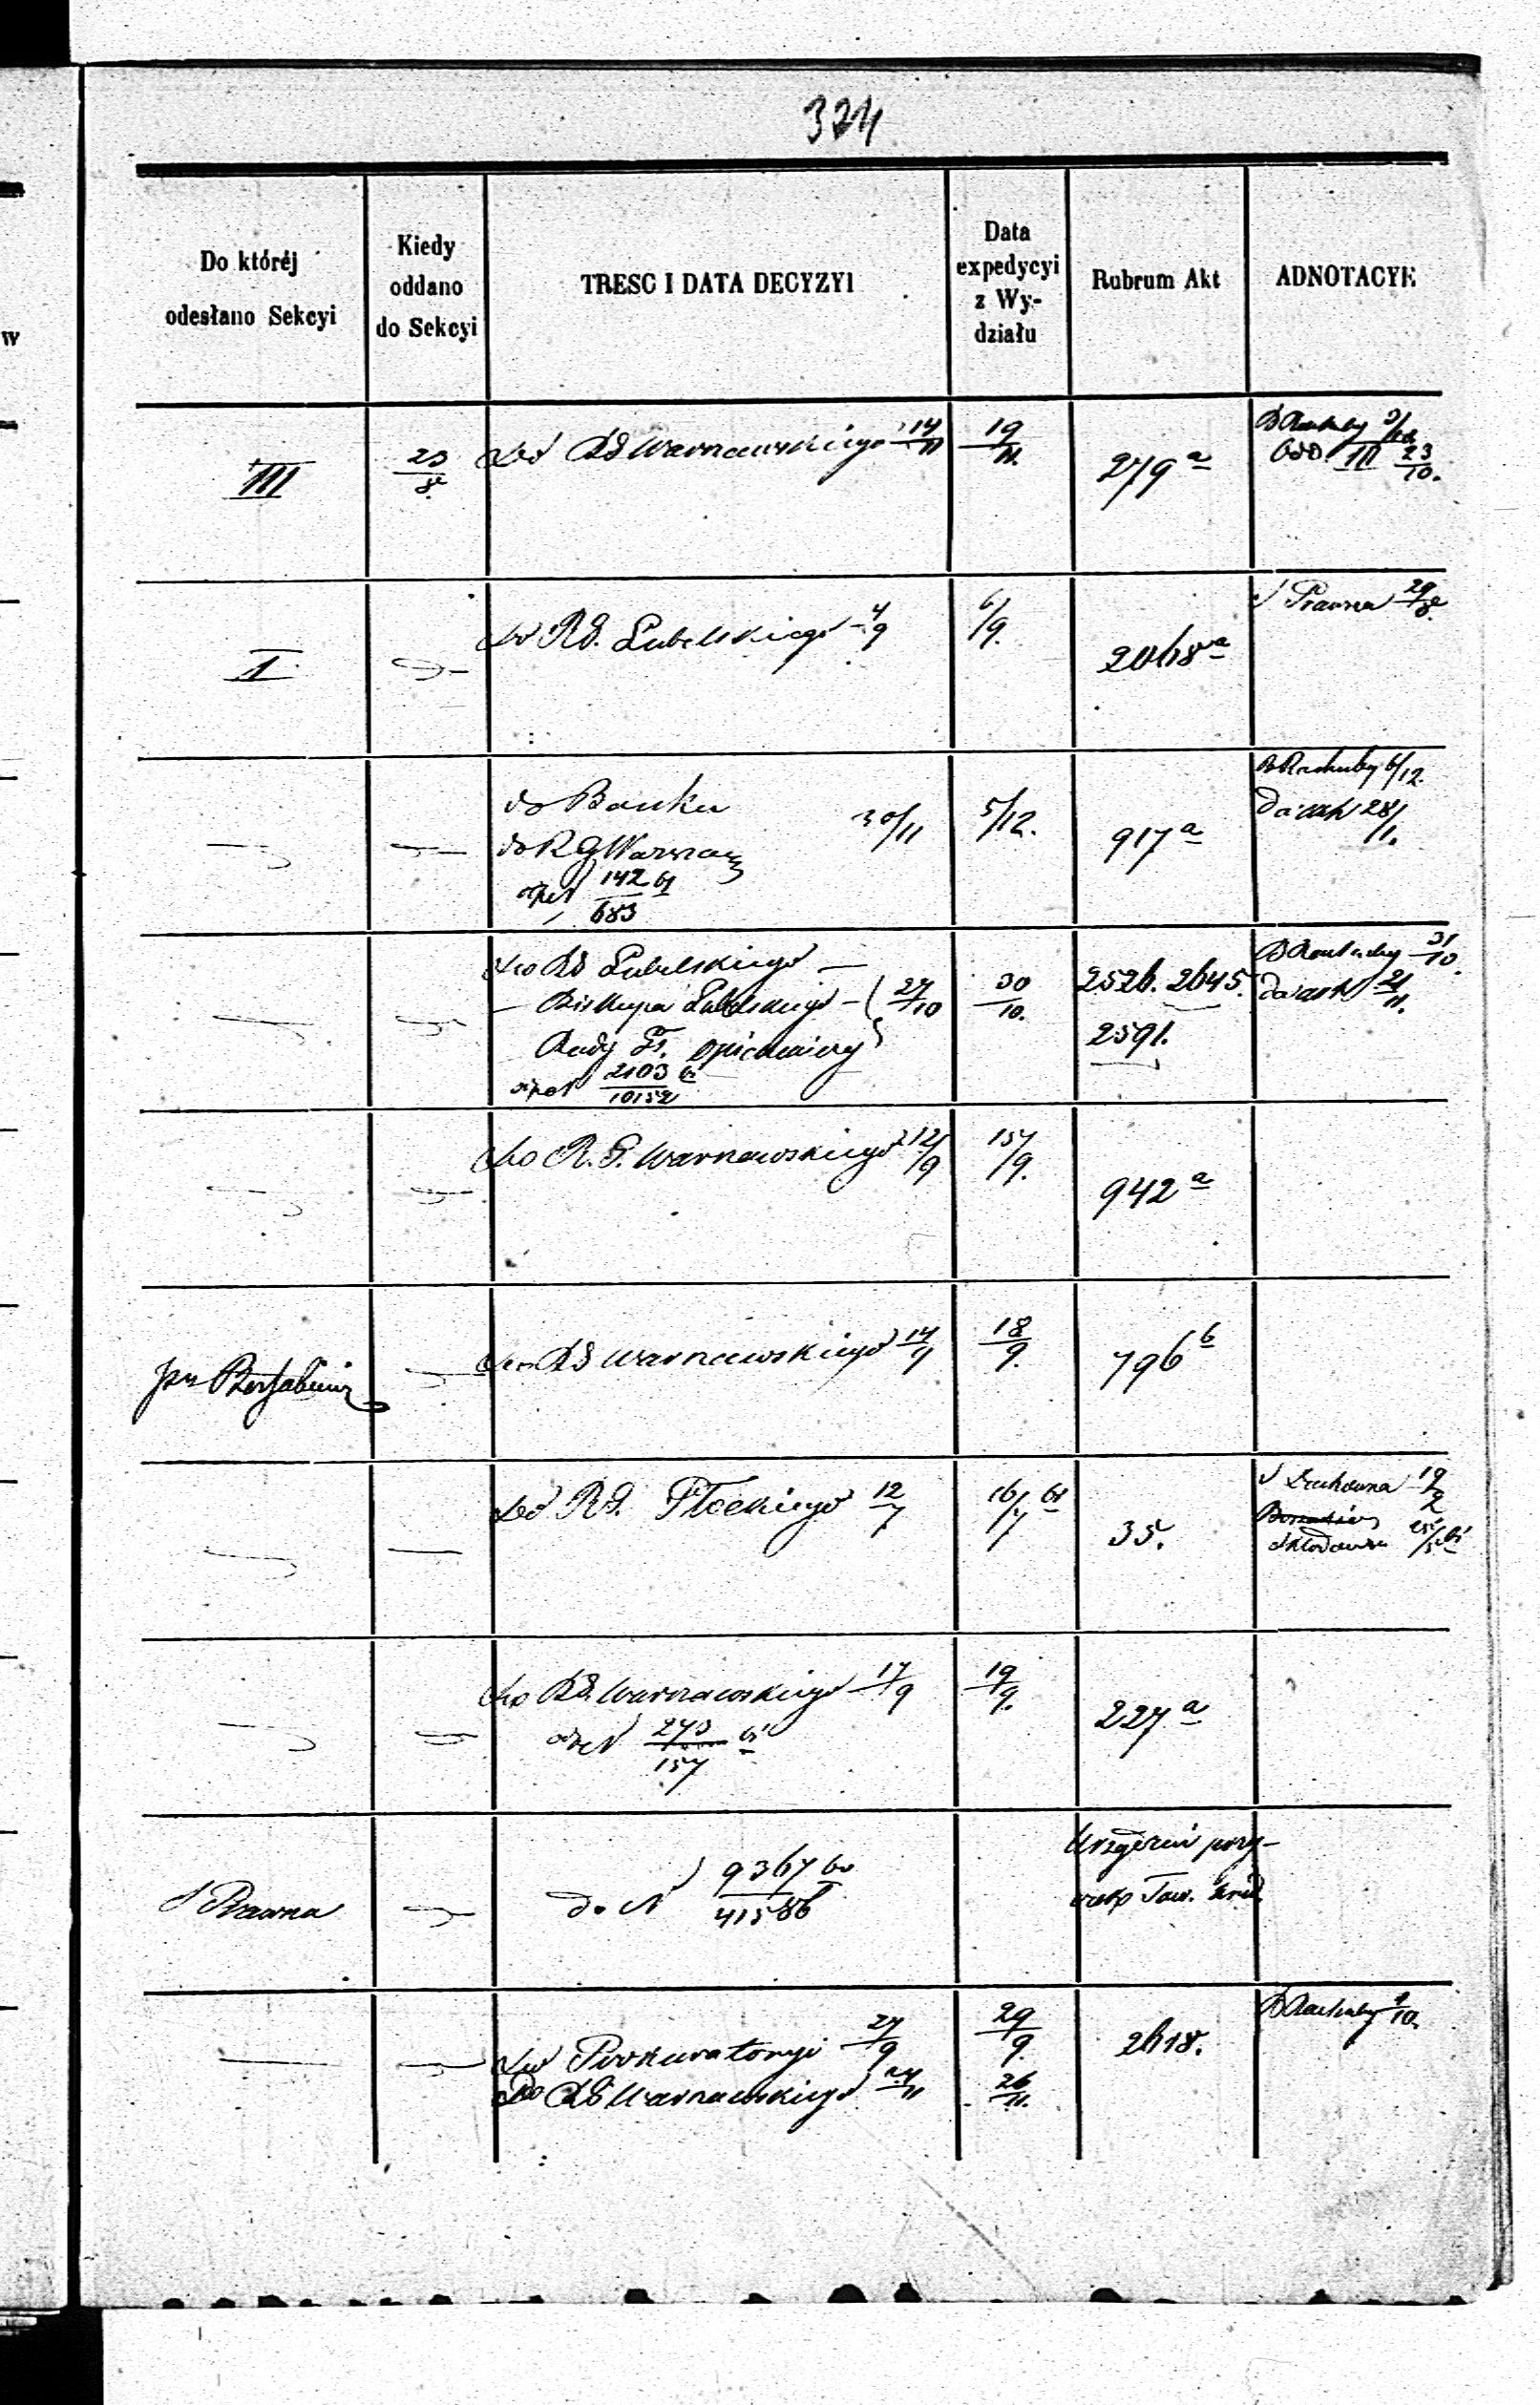 324
Do któréj
odesłano Sekcyi
Kiedy
oddano
do Sekcyi
TRESC I DATA DECYZYI
Data
expedycyi
z Wy-
działu
Rubrum Akt
ADNOTACYE
III
23/8
do RG Warszawskiego 14/11
19/11.
279 a
D Rachuby
Odd III 23/10.
I
do RG. Lubelskiego 4/9
6/9.
2068 a
S Prawna 29/8
do Banku
do RG Warszaw
30/11
142 61
683
5/12.
917 a
D Rachuby 6/12.
28/1.
do RG Lubelskiego
Biskupa Lubelskiego 27/10
Rady Opiekuńczy
2103
10152
30/10.
2526. 2645.
2591.
D Rachuby 31/10.
21/11.
do R. G. Warszawskiego 12/9
15/9.
942 a
do RG Warszawskiego 14/9
18/9.
796 b
do RG. Płockiego 12/7
16/7 61
35.
S Duchowna 19/2
do RG. Warszawskiego 17/9
273
157
19/9.
227 a
S Prawna
do N 9367 60
41586
Urządzeń przy-
Tow. Kred.
do Prokuratoryi 27/9
Do RG Warszawskiego 24/11
29/9.
26/11.
2618.
D Rachuby 1/10.